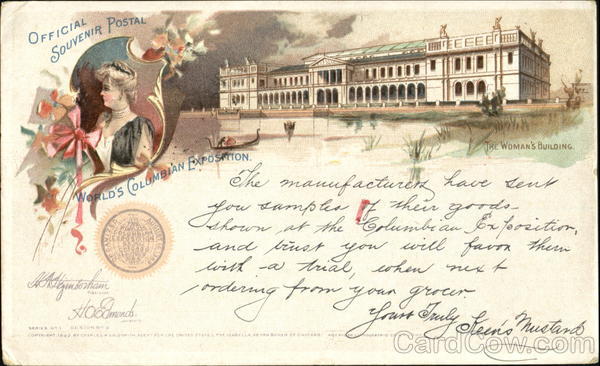 OFFICIAL
SOUVENIR POSTAL
WORLD'S COLUMBIAN EXPOSITION.
THE WOMAN'S BUILDING.
The manufacturers have sent
you samples of their goods
shown at the Columbian Exposition,
and trust you will favor them
with a trial, when next
ordering from your grocer.
Yours Truly Keen's Mustard
PRESIDENT
SERIES No. 1 DESIGN No.
COPYRIGHT 1893 BY CHARLES W. GOLDSMITH, AGENT FOR THE UNITED STATES,
CardCow.com